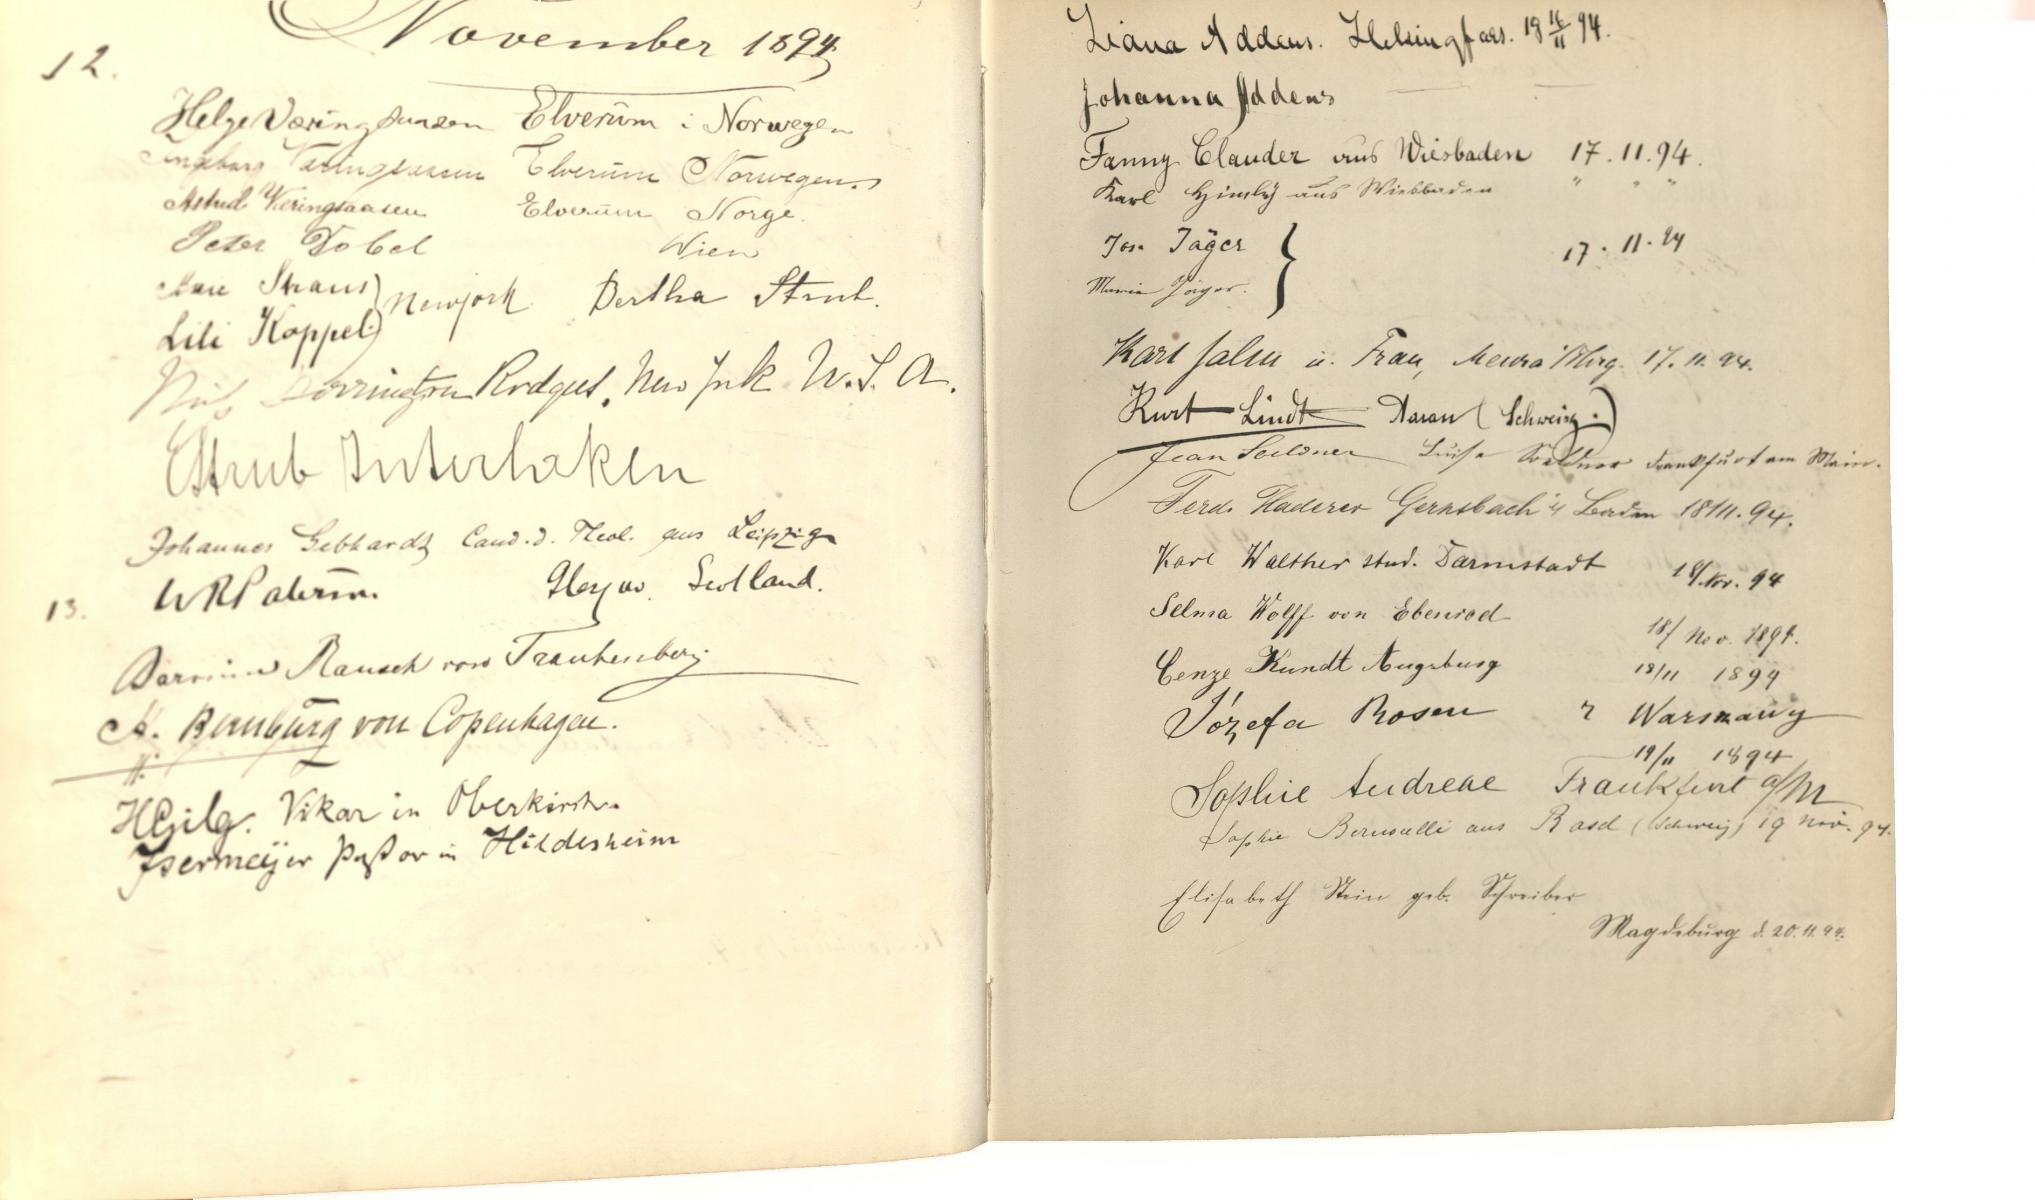 November 1894
12.
Helge Væringsaasen Elverūm i Norwegen
Ingeborg Væringsaasen Elverūm Norwegen.
Astrid Væringsaasen Elverūm Norge.
Peter Dobel Wien
Straus
Lili Koppel } Newyork Bertha Strub.
Dorrington Rodgers, New York U.S.A.
EStrub Interlaken
Johannes Gebhardt Cand. d. Theol. aus Leipzig
13. W R Paterson. Glasgow. Scotland.
Rausch von Traubenberg
A. Bernbūrg von Copenhagen.
Vikar in Oberkirch.
Isermeÿer Pastor in Hildesheim
Addens. Helsingfors. 18 16/11 94.
Johanna Addens
Fanny Clauder aus Wiesbaden 17.11.94.
Karl Himlÿ aūs Wiesbaden " " "
Jos. Jäger } 17.11.94
Maria Jäger.
Karl u. Frau, 17.11.94.
Kurt Lindt Aarau (Schweiz.)
Jean Soldner Luise Soldner Frankfurt am Main.
Ferd. Haderer Gernsbach i/ Baden 18/11.94.
Karl Walther stud. Darmstadt 18/Nov. 94
Selma Wolff von Ebenrod 18/ Nov. 1894.
Cenze Kundt Augsburg 18/11 1894
Józefa Rosen z Warszawy
19/11 1894
Sophie Andreae Frankfurt a/M
Sophie Bernoulli aus Basel (Schweiz) 19 Nov. 94.
Elisabeth Stein geb. Schreiber
Magdeburg d. 20.11.94.